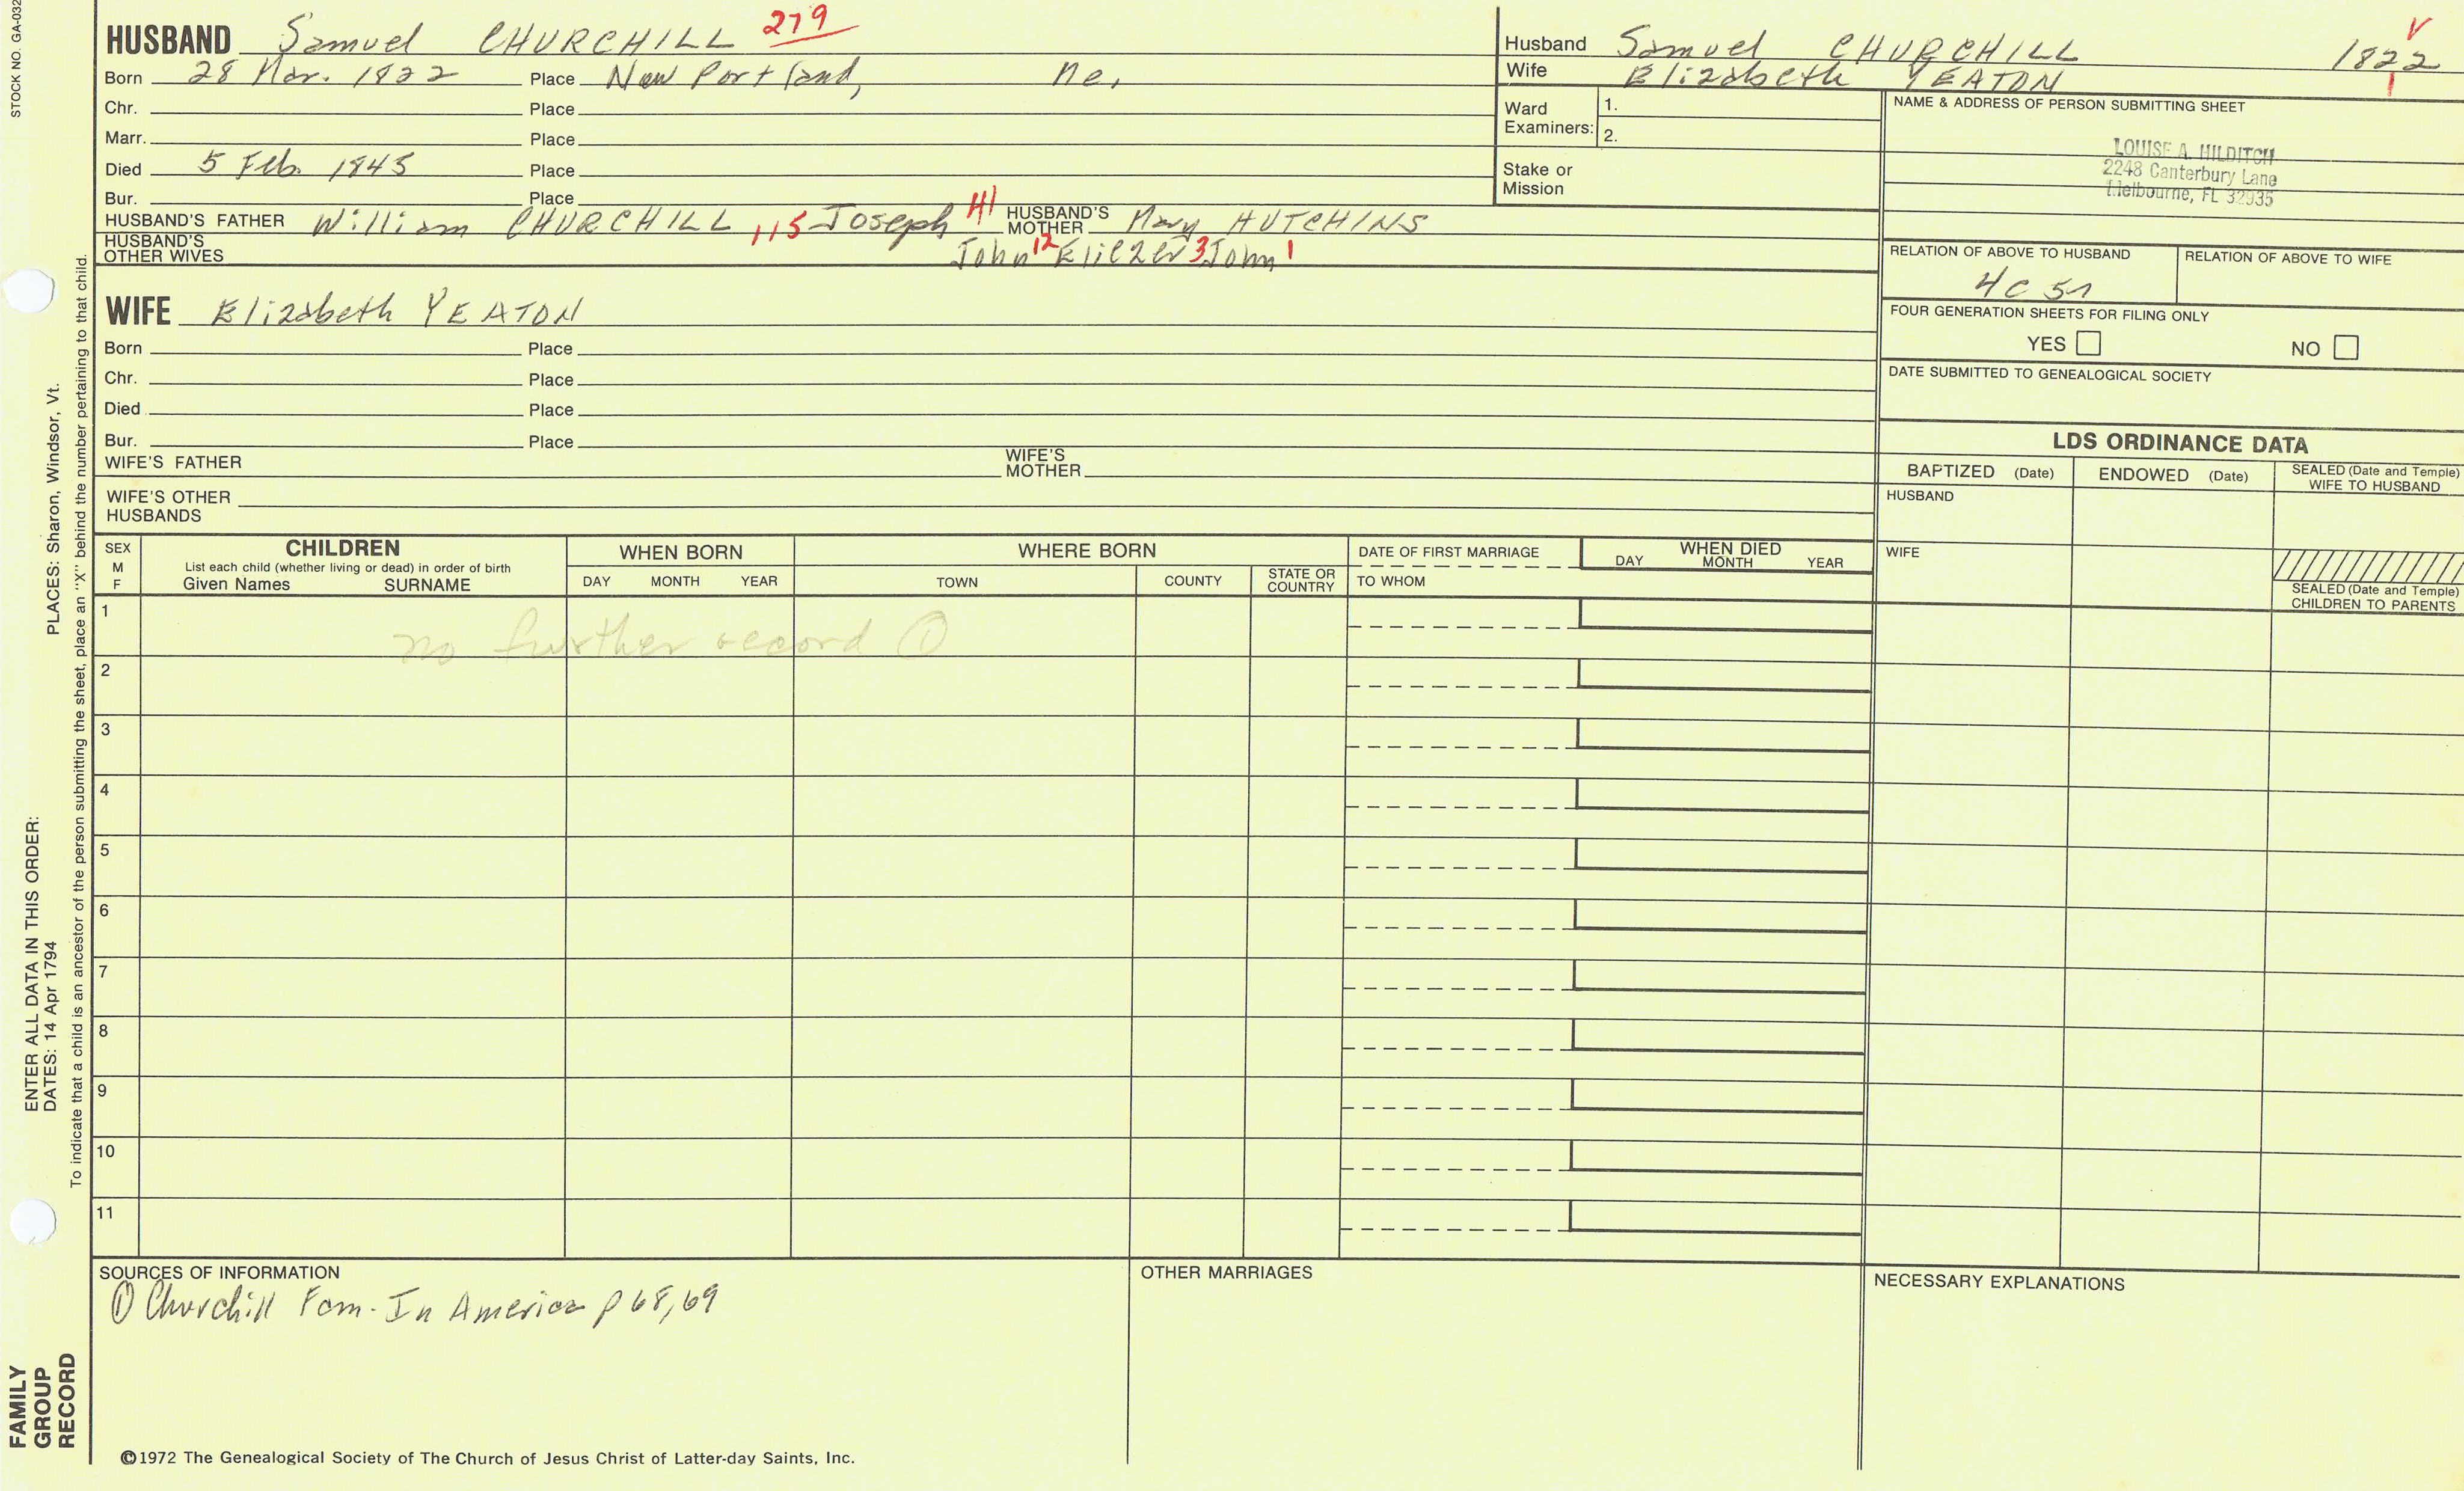 STOCK NO. GA-032
HUSBAND Samuel CHURCHILL 279
Born 28 Mar. 1822 Place New Portland, Me.
Chr. Place
Marr. Place
Died 5 Feb. 1845 Place
Bur. Place
HUSBAND'S FATHER William CHURCHILL 115 Joseph 41 HUSBAND'S MOTHER Mary HUTCHINS
HUSBAND'S OTHER WIVES John 12 Eliezer 3 John 1
Husband Samuel CHURCHILL 1822
Wife Elizabeth YEATON
Ward Examiners: 1.
2.
Stake or Mission
NAME & ADDRESS OF PERSON SUBMITTING SHEET
LOUISE A. HILDITCH
2248 Canterbury Lane
Melbourne, FL 32935
RELATION OF ABOVE TO HUSBAND RELATION OF ABOVE TO WIFE
4C 5r
FOUR GENERATION SHEETS FOR FILING ONLY
YES NO
DATE SUBMITTED TO GENEALOGICAL SOCIETY
WIFE Elizabeth YEATON
Born Place
Chr. Place
Died Place
Bur. Place
WIFE'S FATHER WIFE'S MOTHER
WIFE'S OTHER HUSBANDS
LDS ORDINANCE DATA
BAPTIZED (Date) ENDOWED (Date) SEALED (Date and Temple) WIFE TO HUSBAND
HUSBAND
WIFE
SEALED (Date and Temple) CHILDREN TO PARENTS
SEX M F
CHILDREN
List each child (whether living or dead) in order of birth
Given Names SURNAME
WHEN BORN
DAY MONTH YEAR
WHERE BORN
TOWN COUNTY STATE OR COUNTRY
DATE OF FIRST MARRIAGE
TO WHOM
WHEN DIED
DAY MONTH YEAR
1 no further record ①
2
3
4
5
6
7
8
9
10
11
SOURCES OF INFORMATION
① Churchill Fam. In America p 68,69
OTHER MARRIAGES
NECESSARY EXPLANATIONS
©1972 The Genealogical Society of The Church of Jesus Christ of Latter-day Saints, Inc.
ENTER ALL DATA IN THIS ORDER:
DATES: 14 Apr 1794
PLACES: Sharon, Windsor, Vt.
To indicate that a child is an ancestor of the person submitting the sheet, place an "X" behind the number pertaining to that child.
FAMILY
GROUP
RECORD